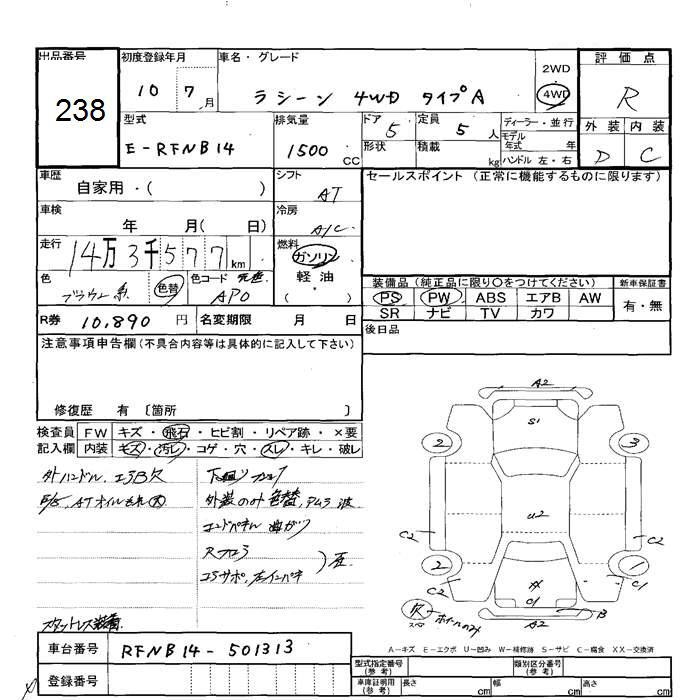 出品番号 238
初度登録年月 10 7月
車名・グレード ラシーン 4WD タイプA
2WD 4WD
評価点 R
外装 内装
D C
型式 E-RFNB14
排気量 1500 CC
ドア 5
形状
定員 5人
積載 kg
ディーラー・並行
モデル年式 年
ハンドル 左・右
車歴 自家用・( )
シフト AT
セールスポイント (正常に機能するものに限ります)
車検 年 月( 日)
冷房 A/C
走行 14万3千577km
燃料 ガソリン
軽油
( )
色 ブラウン系 色替
色コード 元色 AP0
装備品 (純正品に限り○をつけてください)
新車保証書
PS PW ABS エアB AW
有・無
SR ナビ TV カワ
R券 10,890 円
名変期限 月 日
後日品
注意事項申告欄(不具合内容等は具体的に記入して下さい)
修復歴 有 〔箇所 〕
検査員 FW キズ・飛石・ヒビ割・リペア跡・×要
記入欄 内装 キズ・汚レ・コゲ・穴・スレ・キレ・破レ
外ハンドル、エラB欠
下廻り
E/G、ATオイルもれ大
外装のみ色替
エンドパネル 曲がり
Rフロア
スタットレス装着
A2
S1
2 3
U2
C2 C2
2 1
C2 C1
C1
B
A2
欠
ホイールのみ
A-キズ E-エクボ U-凹み W-補修跡 S-サビ C-腐食 XX-交換済
車台番号 RFNB14-501313
登録番号
型式指定番号(参考)
類別区分番号(参考)
車庫証明用(参考) 長さ cm 幅 cm 高さ cm